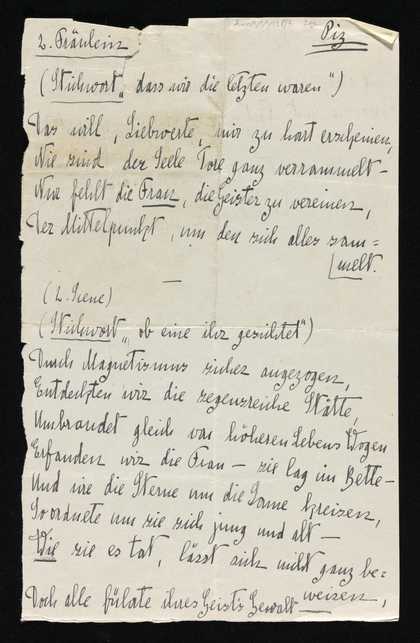 2. Fräulein
Piz
(Stichwort „dass wir die letzten waren“)
Das will, Liebwerte, mir zu hart erscheinen,
Nie sind der Seele Tore ganz verrammelt –
Nur fehlt die Frau, die Geister zu vereinen,
Der Mittelpunkt, um den sich alles sam=
melt.
(2. Scene)
(Stichwort „ob eine ihr gesichtet“)
Durch Magnetismus sicher angezogen,
Entdeckten wir die segensreiche Stätte,
Umbrandet gleich von höheren Lebens Wogen
Erfanden wir die Frau – sie lag im Bette –
Und wie die Sterne um die Sonne kreisen,
So ordnete um sie sich jung und alt –
Wie sie es tat, lässt sich nicht ganz be=
weisen,
Doch alle fühlte ihres Geist's Gewalt